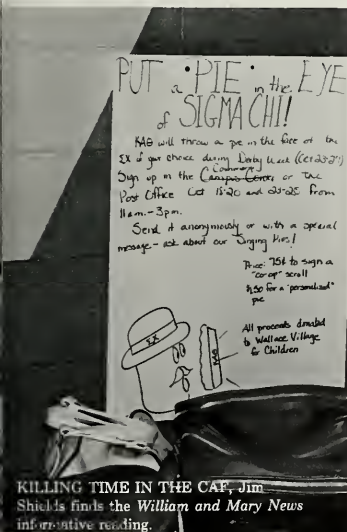 PUT a • PIE • in the EYE
of SIGMA CHI!
KAΘ will throw a pie in the face of the
ΣX of your choice during Derby Week (Oct 23-27)
Sign up in the Commons or the
Post Office Oct 18-20 and 23-25 from
11am.-3pm.
Send it anonymously or with a special
message - ask about our Singing Pies!
Price: 75¢ to sign a
"co-op" scroll
for a "personalized"
pie
All proceeds donated
to Wallace Village
for Children
ΣX
KAΘ
KILLING TIME IN THE CAF, Jim
Shields finds the William and Mary News
informative reading.